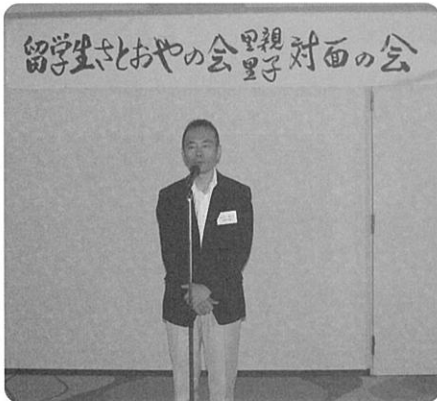 留学生さとおやの会 里親里子 対面の会